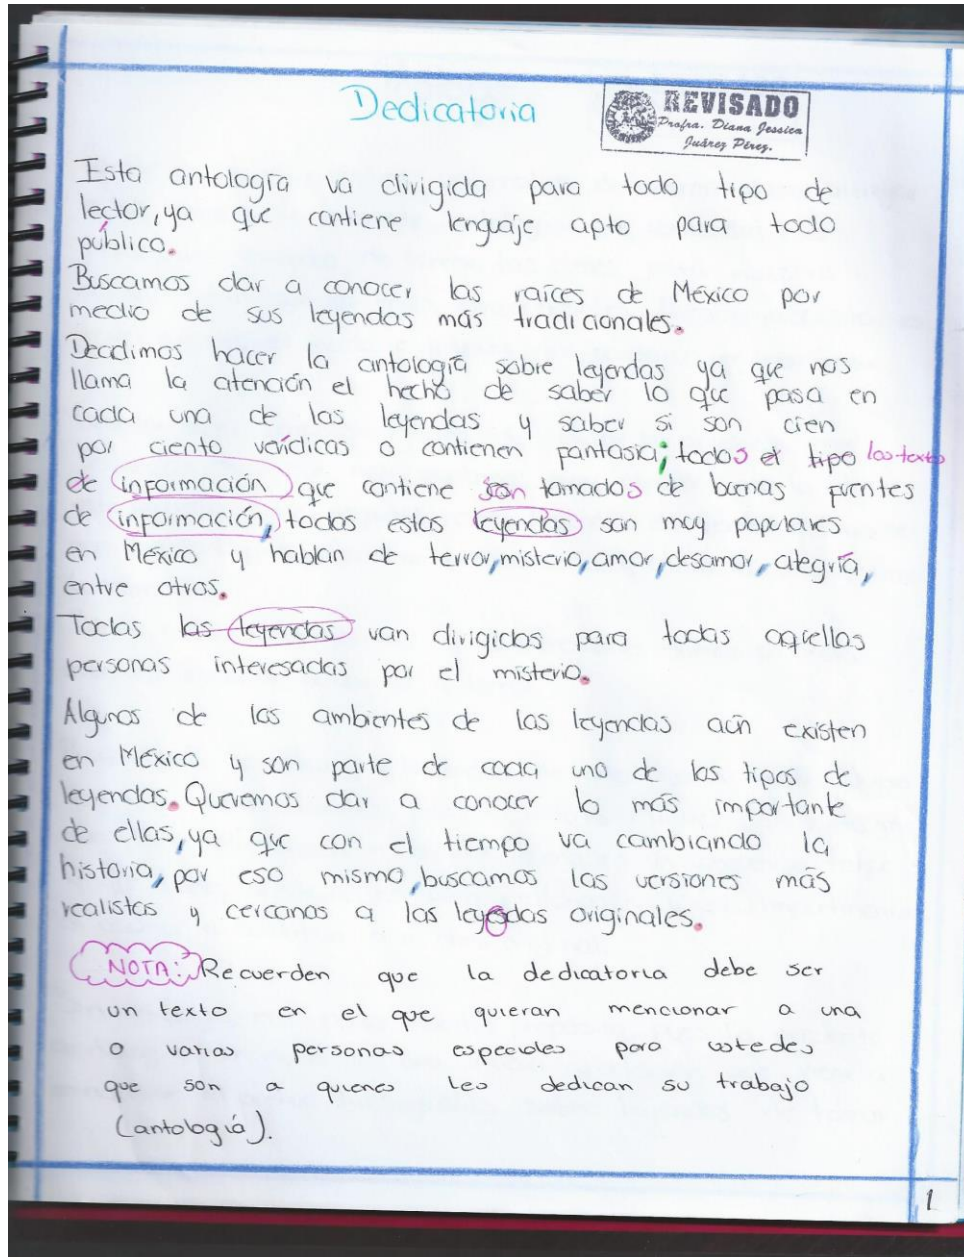 Dedicatoria
REVISADO
Profra. Diana Jessica
Juárez Pérez.
Esta antología va dirigida para todo tipo de
lector, ya que contiene lenguaje apto para todo
público.
Buscamos dar a conocer las raíces de México por
medio de sus leyendas más tradicionales.
Decidimos hacer la antología sobre leyendas ya que nos
llama la atención el hecho de saber lo que pasa en
cada una de las leyendas y saber si son cien
por ciento verídicas o contienen fantasia; todos el tipo los textos
de información que contiene son tomados de buenas fuentes
de información, todas estas leyendas son muy populares
en México y hablan de terror, misterio, amor, desamor, alegría,
entre otros.
Todas las leyendas van dirigidas para todas aquellas
personas interesadas por el misterio.
Algunos de los ambientes de las leyendas aún existen
en México y son parte de cada uno de los tipos de
leyendas. Queremos dar a conocer lo más importante
de ellas, ya que con el tiempo va cambiando la
historia, por eso mismo, buscamos las versiones más
realistas y cercanas a las leyedas originales.
NOTA: Recuerden que la dedicatoria debe ser
un texto en el que quieran mencionar a una
o varias personas especiales para ustedes
que son a quienes les dedican su trabajo
(antología).
1